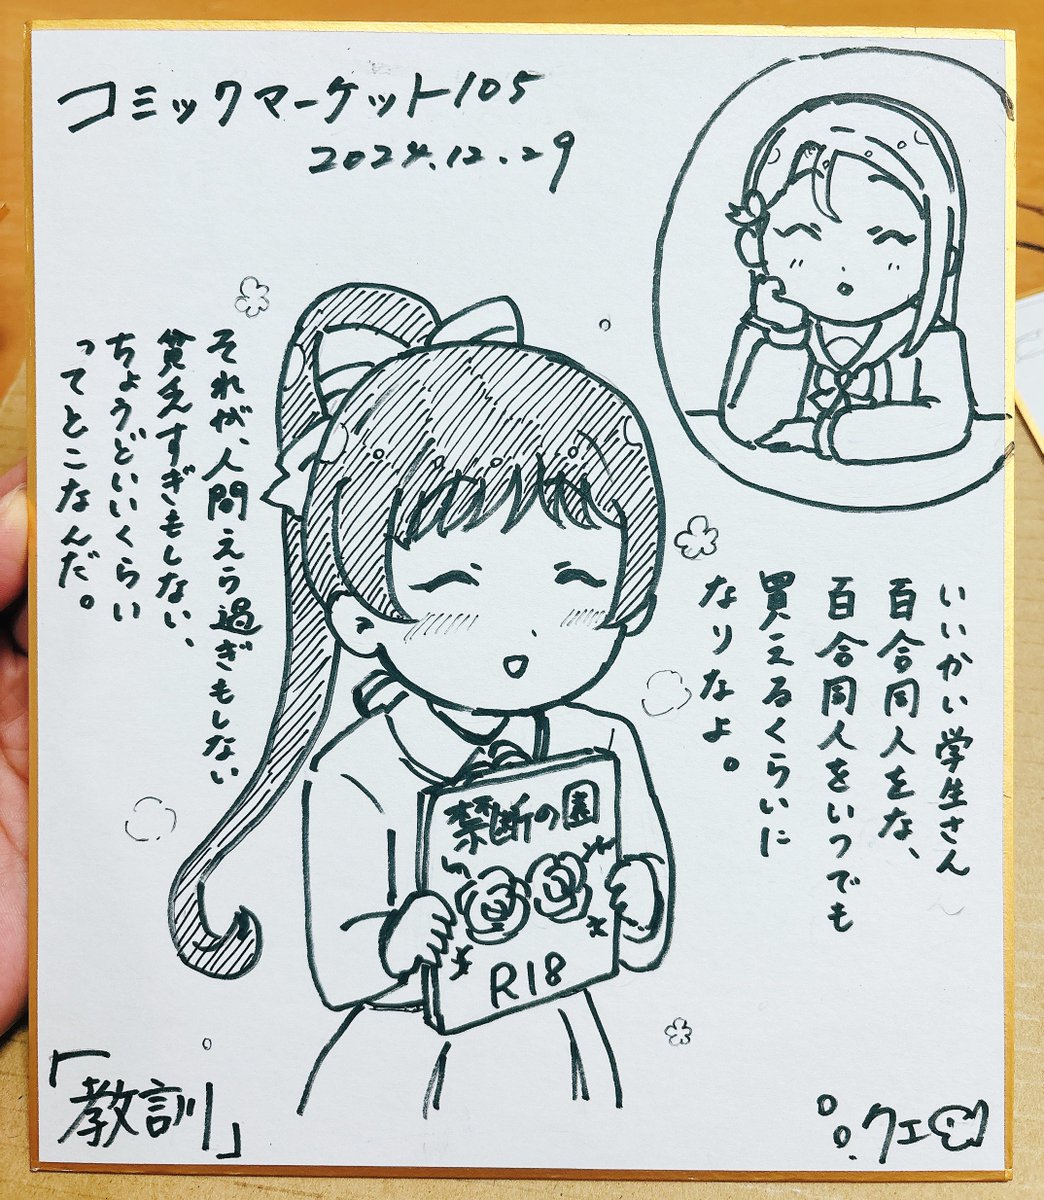 コミックマーケット105
2024.12.29
いいかい学生さん
百合同人をな、
百合同人をいつでも
買えるくらいに
なりなよ。
それが、人間えら過ぎもしない
貧乏すぎもしない、
ちょうどいいくらい
ってとこなんだ。
禁断の園
R18
「教訓」
クエ